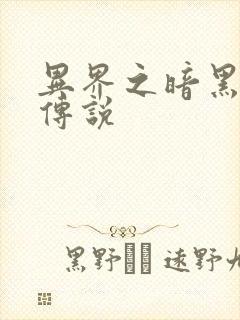 異界之暗黑
傳說
黑野 遠野九